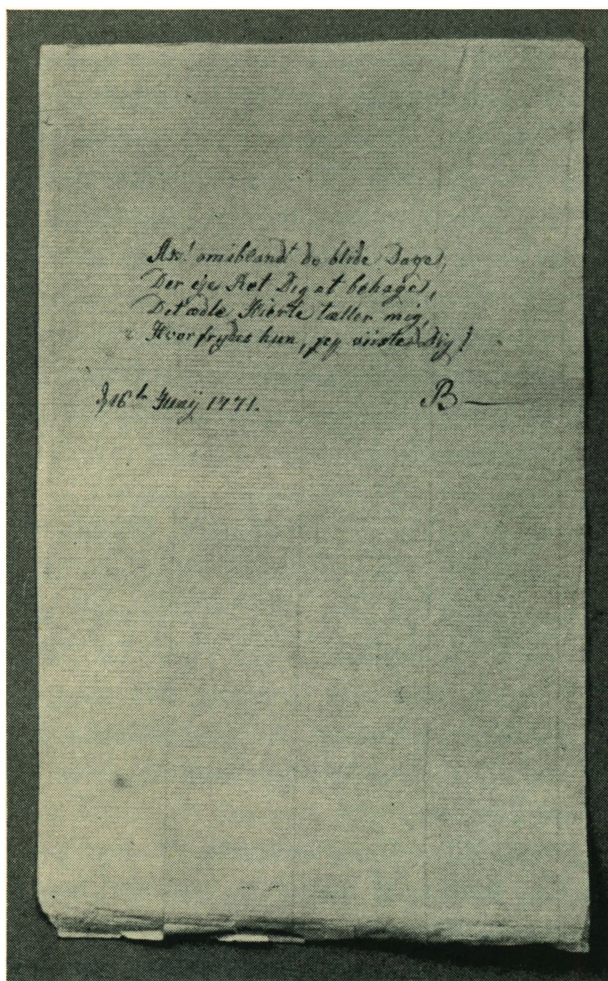 Ax! omiblandt de blide Dage,
Der eje Ret Dig at behage,
Det ædle Hierte tæller mig,
Hvor frydes hun, jeg viiste Dig!
16de Junij 1771.
B